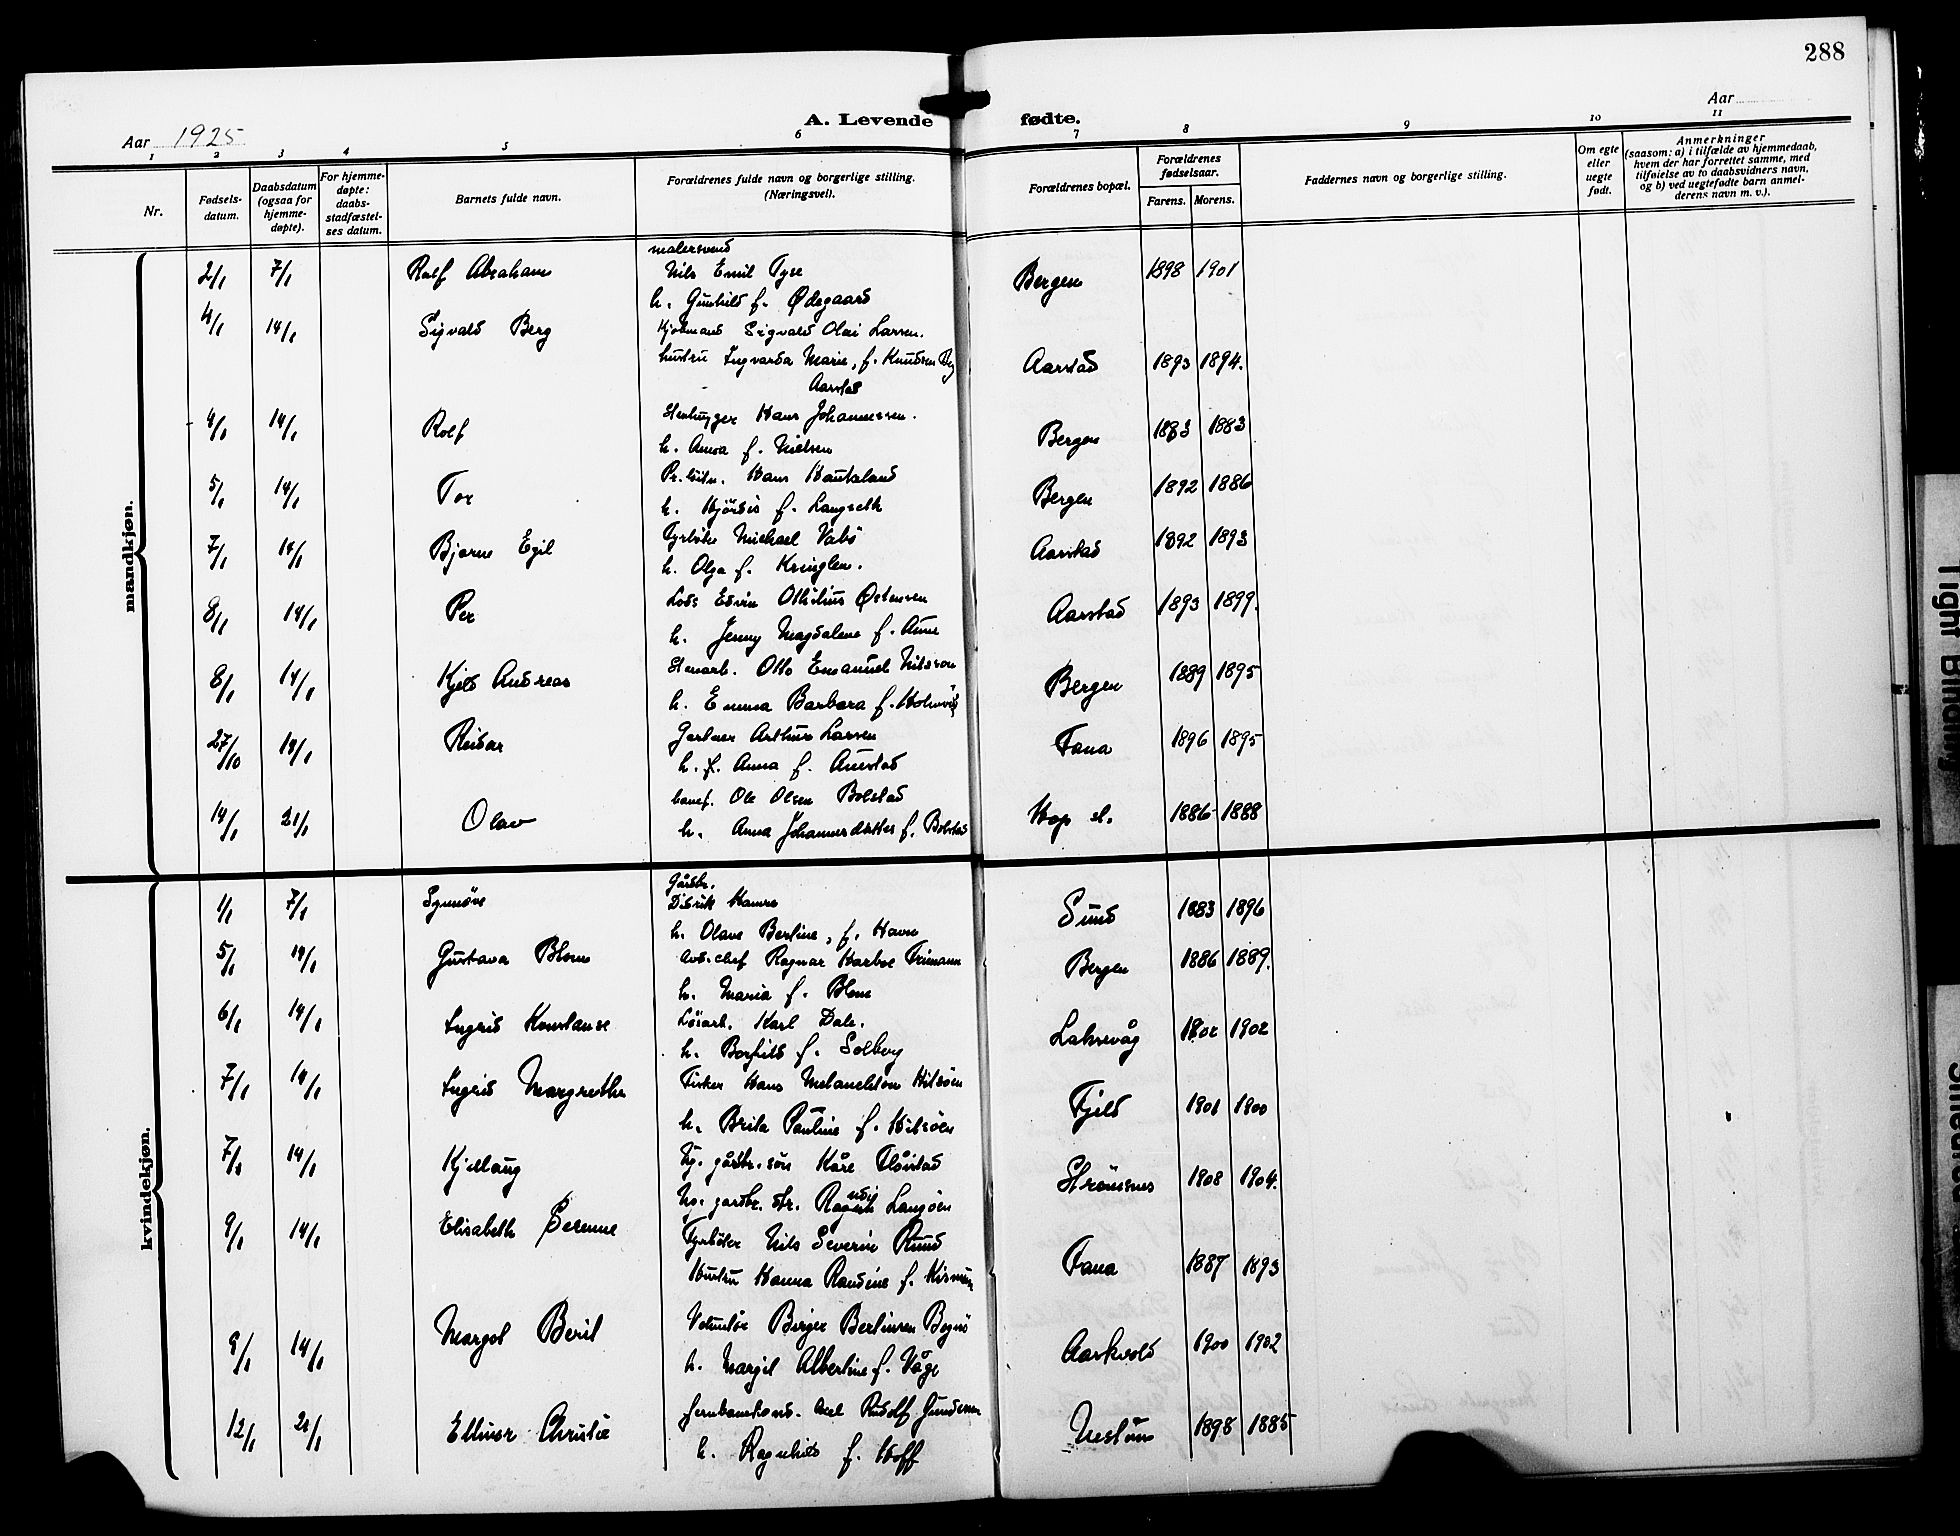 288
Aar 1925
A. Levende fødte.
Aar
1 2 3 4 5 6 7 8 9 10 11
Nr.
Fødsels-
datum.
Daabsdatum
(ogsaa for
hjemme-
døpte).
For hjemme-
døpte:
daabs-
stadfæstel-
ses datum.
Barnets fulde navn.
Forældrenes fulde navn og borgerlige stilling.
(Næringsvei).
Forældrenes bopæl.
Forældrenes
fødselsaar.
Farens. Morens.
Faddernes navn og borgerlige stilling.
Om egte
eller
uegte
født.
Anmerkninger
(saasom: a) i tilfælde av hjemmedaab,
hvem der har forrettet samme, med
tilføielse av to daabsvidners navn,
og b) ved uegtefødte barn anmel-
derens navn m. v.).
mandkjøn.
malersvend
2/1 7/1 Rolf Abraham Nils Emil Tyse Bergen 1898 1901
h. Gunhild f. Ødegaard
4/1 14/1 Sigvald Berg Kjøbmand Sigvald Olai Larsen.
hustru Ingvarda Marie, f. Knudsen Aarstad 1893 1894.
Aarstad
4/1 14/1 Rolf Stenhugger Hans Johannessen. Bergen 1883 1883
h. Anna f. Nielsen
5/1 14/1 Tor Hans Hauksland Bergen 1892 1886
h. Hjördis f. Langseth
7/1 14/1 Bjarne Egil Fyrböter Michael Vabö Aarstad 1892 1893
h. Olga f. Kringlen.
8/1 14/1 Per Lods Edvin Othilius Østensen Aarstad 1893 1899.
h. Jenny Magdalene f. Aune
8/1 14/1 Kjeld Andreas Stenarb. Otto Emanuel Nilsson Bergen 1889 1895
h. Emma Barbara f. Holmvik
27/10 14/1 Reidar Gartner Arthur Larsen Fana 1896 1895
h. f. Anna f. Austad
14/1 21/1 Olav banef. Ole Olsen Bolstad Hop st. 1886 1888
h. Anna Johannesdatter f. Bolstad
kvindekjøn.
Gårdbr.
1/1 7/1 Synnöve Didrik Hamre Sund 1883 1896
h. Olave Bertine, f. Havn
5/1 14/1 Gustava Blom Avd.chef Ragnar Harboe Frimann Bergen 1886 1889.
h. Maria f. Blom
6/1 14/1 Ingrid Konstanse Lösarb. Karl Dale. Laksevåg 1902 1902
h. Borghild f. Solberg
7/1 14/1 Ingrid Margrethe Fisker Hans Melanchton Hitsöen Fjeld 1901 1900
h. Brita Pauline f. Hitsöen
7/1 14/1 Kjellaug Ug. gårdbr. sön Kåre Flåistad Strömsnes 1908 1904.
Ug. gardbr. dtr. Langöen
9/1 14/1 Elisabeth Severine Fyrböter Nils Severin Rund Fana 1887 1893
Hustru Hanna Randine f.
9/1 14/1 Margot Berit Volontör Birger Bertinsen Bognö Aarkvold 1900 1902
h. Margit Albertine f. Våge
12/1 21/1 Ellinor Christie Jernbanekond. Axel Rudolf Gundersen Nestun 1898 1885
h. Ragnhild f. Hoff
Tight Binding